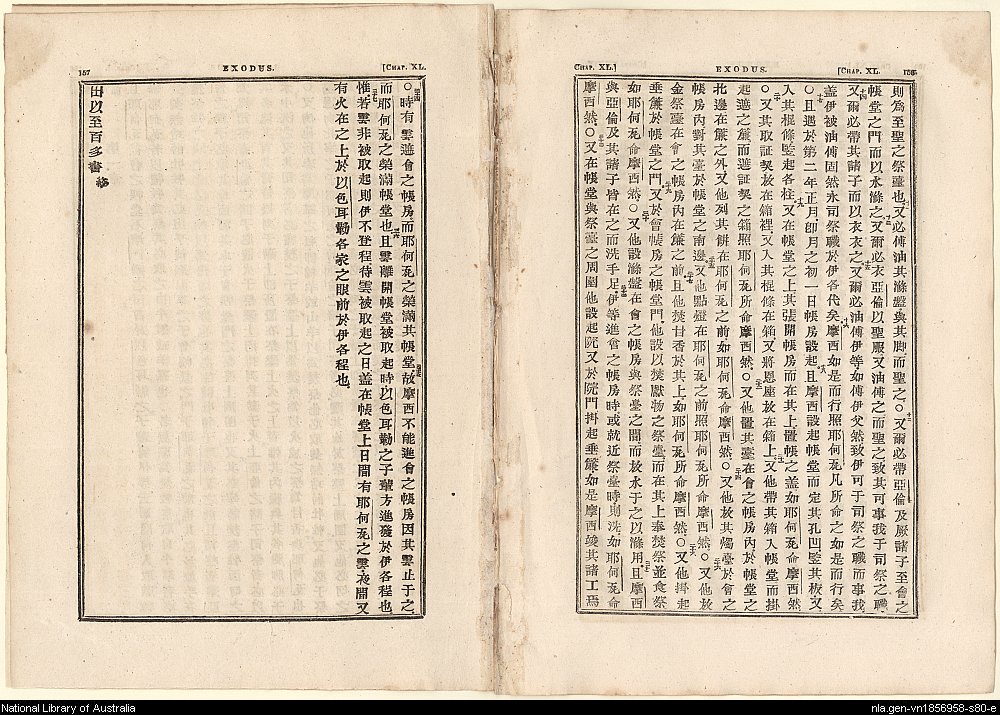 CHAP. XL.]
EXODUS.
[CHAP. XL.
156
則為至聖之祭臺也又必傅油其滌盤與其脚而聖之○又爾必帶亞倫及厥諸子至會之
帳堂之門而以水滌之又爾必衣亞倫以聖服又油傅之而聖之致其可事我于司祭之職
又爾必帶其諸子而以衣衣之又爾必油傅伊等如傅伊父然致伊可于司祭之職而事我
蓋伊被油傅固然永司祭職於伊各代矣摩西如是而行照耶何瓦凡所命之如是而行矣
○且遇於第二年正月卽月之初一日帳房設起且摩西設起帳堂而定其孔凹竪其板又
入其棍條竪起各柱又在帳堂之上其張開帳房而在其上置帳之盖如耶何瓦命摩西然
○又其取証契放在箱裡又入其棍條在箱又將恩座放在箱上又他帶其箱入帳堂而掛
起遮之簾而遮証契之箱照耶何瓦所命摩西然○又他置其臺在會之帳房內於帳堂之
北邊在簾之外又他列其餅在耶何瓦之前如耶何瓦命摩西然○又他放其燭臺於會之
帳房內對其臺於帳堂之南邊又他點燈在耶何瓦之前照耶何瓦所命摩西然○又他放
金祭臺在會之帳房內在簾之前且他焚甘香於其上如耶何瓦所命摩西然○又他掛起
垂簾於帳堂之門又於會帳房之帳堂門他設以焚獻物之祭臺而在其上奉焚祭並食祭
如耶何瓦命摩西然○又他設滌盤在會之帳房與祭臺之間而放水于之以滌用且摩西
與亞倫及其諸子皆在之而洗手足伊等進會之帳房時或就近祭臺時則洗如耶何瓦命
摩西然○又在帳堂與祭臺之周圍他設起院又於院門掛起垂簾如是摩西竣其諸工焉
157
EXODUS.
[CHAP. XL.
○時有雲遮會之帳房而耶何瓦之榮滿其帳堂故摩西不能進會之帳房因其雲止于之
而耶何瓦之榮滿帳堂也且雲離開帳堂被取起時以色耳勒之子輩方進發於伊各程也
惟若雲非被取起則伊不登程待雲被取起之日盖在帳堂上日間有耶何瓦之雲夜間又
有火在之上於以色耳勒各家之眼前於伊各程也
出以至百多書 終
National Library of Australia
nla.gen-vn1856958-s80-e